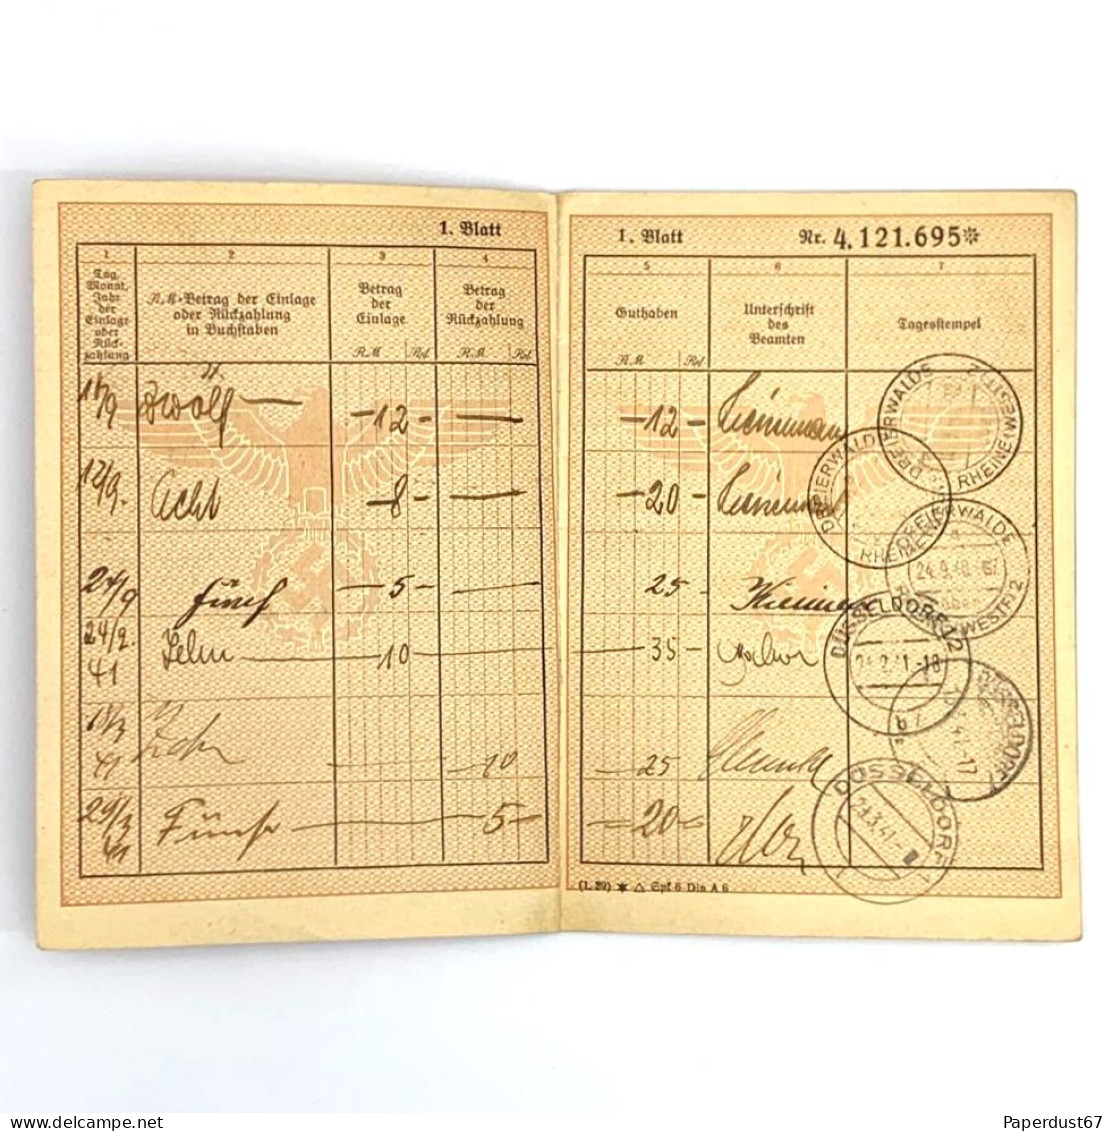 1. Blatt
1 2 3 4
Tag,
Monat,
Jahr
der
Einlage
oder
Rück-
zahlung
RM-Betrag der Einlage
oder Rückzahlung
in Buchstaben
Betrag
der
Einlage
RM Rpf
Betrag
der
Rückzahlung
RM Rpf
Zwölf — — 12 — —
12/9. Acht — 8 — —
24/9 fünf — 5 — —
24/2. 41 Zehn — 10 —
18/3 41 Zehn — 10
29/3 41 Fünf — 5 —
1. Blatt Nr. 4.121.695*
5 6 7
Guthaben
RM Rpf
Unterschrift
des
Beamten
Tagesstempel
— 12 —
— 20 —
25
— 35 —
— 25 —
— 20 —
DREIERWALDE
RHEINE (WESTF) 2
DREIERWALDE
RHEINE
DREIERWALDE
24.9.
WESTF) 2
DÜSSELDORF 12
24.2.41.-18
DÜSSELDORF
-17
DÜSSELDORF 1
29.3.41.-
(1. 39) ✶ △ Spf 6 Din A 6
Paperdust67